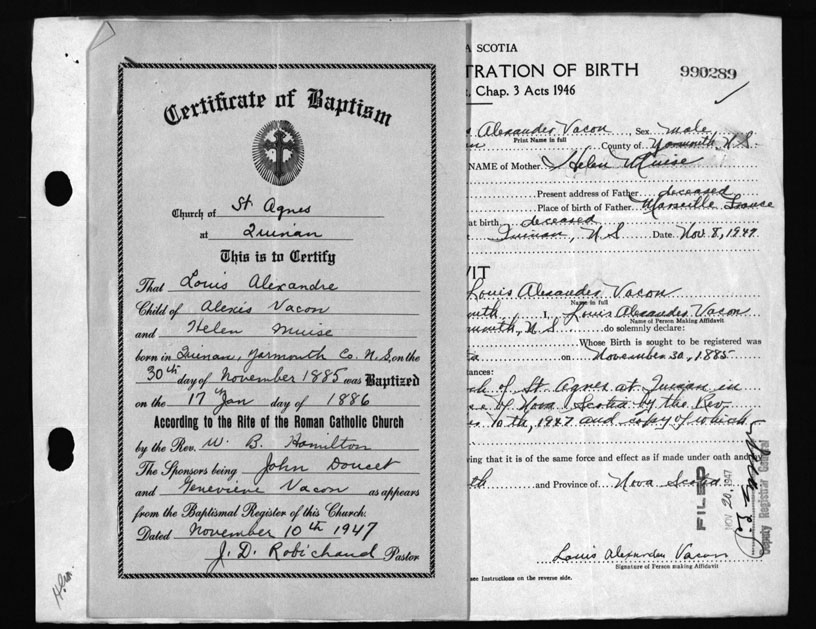 Certificate of Baptism
Church of St Agnes
at Quinan
This is to Certify
That Louis Alexandre
Child of Alexis Vacon
and Helen Muise
born in Quinan, Yarmouth Co. N.S. on the
30th day of November 1885 was Baptized
on the 17 Jan day of 1886
According to the Rite of the Roman Catholic Church
by the Rev. W. B. Hamilton
The Sponsors being John Doucet
and Genevieve Vacon as appears
from the Baptismal Register of this Church.
Dated November 10th 1947
J. D. Robichaud Pastor
A SCOTIA
TRATION OF BIRTH
990289
Chap. 3 Acts 1946
Alexander Vacon, Sex male
Print Name in full
County of Yarmouth, N.S.
NAME of Mother Helen Muise
Present address of Father deceased
Place of birth of Father Marseille France
at birth deceased
Quinan, N S Date Nov. 8, 1947
VIT
Louis Alexander Vacon
Name in full
I, Louis Alexander Vacon
Name of Person Making Affidavit
mouth, N.S. do solemnly declare:
Whose Birth is sought to be registered was
on November 30, 1885
tances:
ch of St Agnes at Quinan in
of Nova Scotia by the Rev.
10th, 1947 and copy of which
ving that it is of the same force and effect as if made under oath and
th and Province of Nova Scotia
FILED
NOV 20 1947
Deputy Registrar General
Louis Alexander Vacon
Signature of Person making Affidavit
see Instructions on the reverse side.